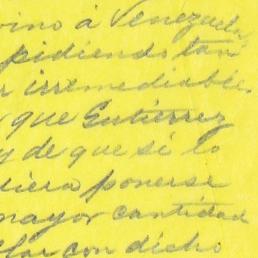 vino á Venezuela,
pidiendo tan
irremediable
que Gutiérrez
y de que si lo
diera ponerse
mayor cantidad
con dicho